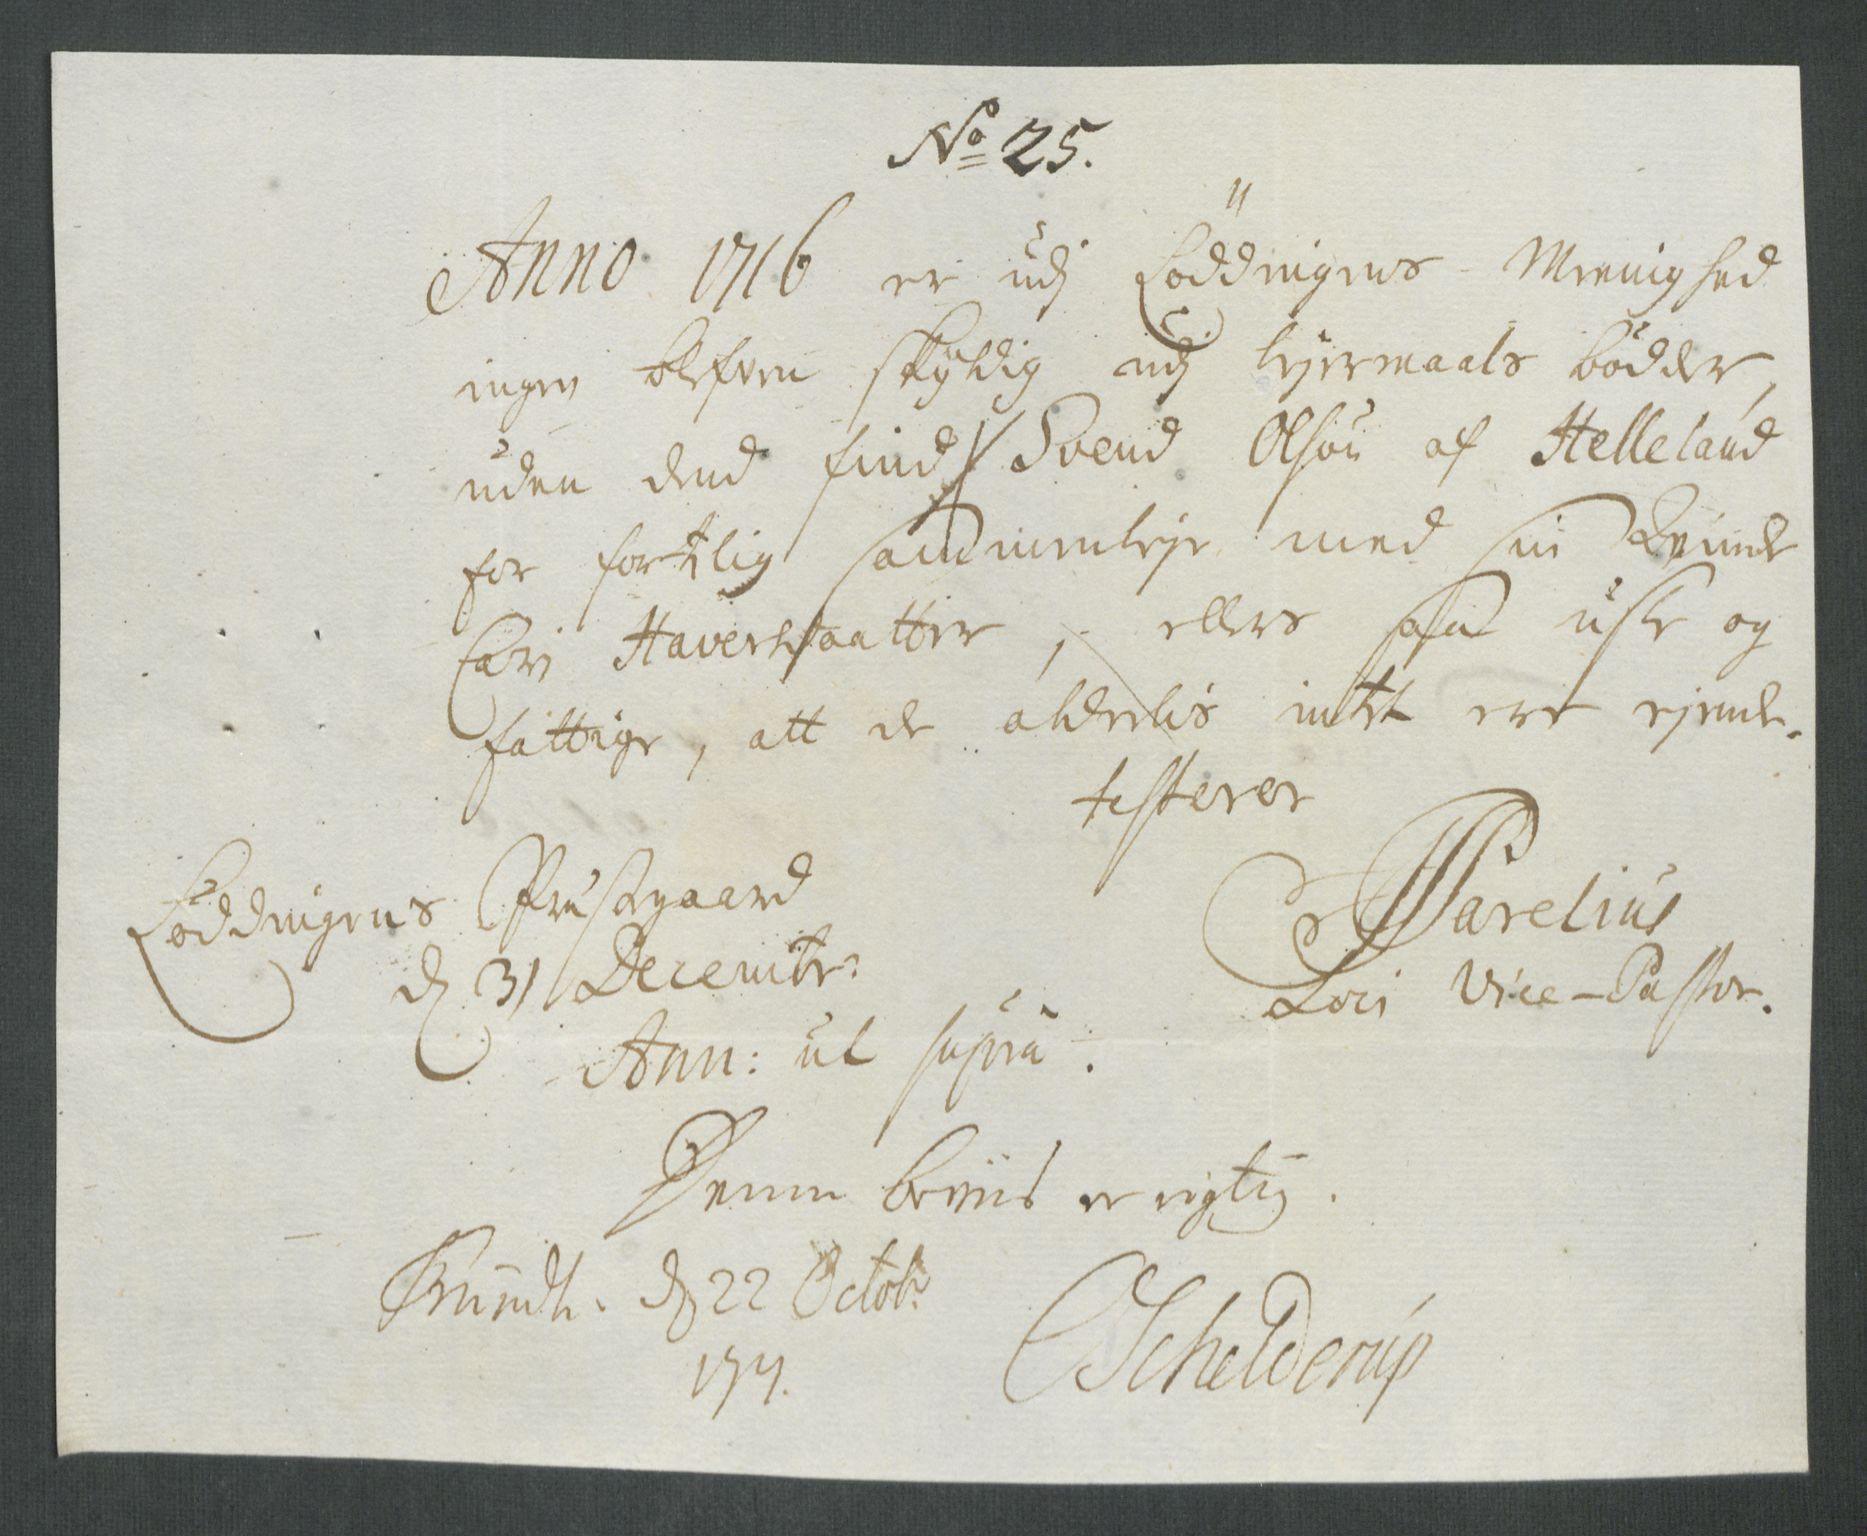 No 25.
Anno 1716 er udj Løddingens Meenighed
ingen blefven skyldig udj lejermaals bøder,
uden dend find Svend Olsøn af Helleland
for fortilig sammenleje med sin Qvinde
Cari Haversdaatter, ellers saa usle og
fattige, att de aldeelis intet ere ejende.
testerer
Løddingens Præstgaard
d 31 Decembr:
Ann: ut supra.
PParelius
Loci Vice-Pastor.
Denne beviis er rigtig.
Trundh. d 22 Octobr
1717.
Schelderup